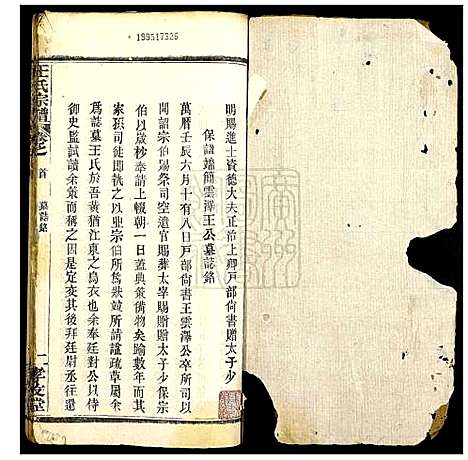 199517326
明賜進士資德大夫正治上卿戶部尚書贈太子少
保謚端簡雲澤王公墓誌銘
萬曆壬辰六月十有八日戶部尚書王雲澤公卒所司以
聞詔宗伯賜祭司空遣官賜葬太宰賜贈太子少保宗
伯以歲杪奉請上輟朝一日蓋典策備物矣踰數年而其
家孫司徒郎執之以旦宗伯所為狀竝所請謚疏草屬余
為誌墓王氏於吾黃猶江東之烏衣也余奉廷對公以侍
御史監試讀余策而稱之因是定交其後拜廷尉丞往還
王氏宗譜
卷之首
墓誌銘
一
孝友堂